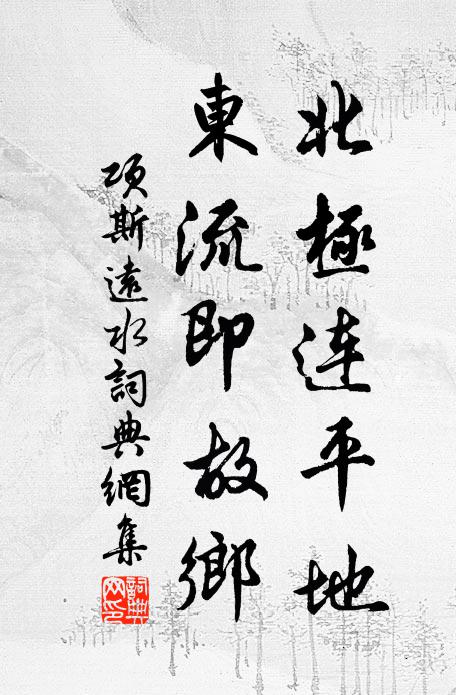 北極連平地
東流即故鄉
項斯遠水詞典網集
詞典網印